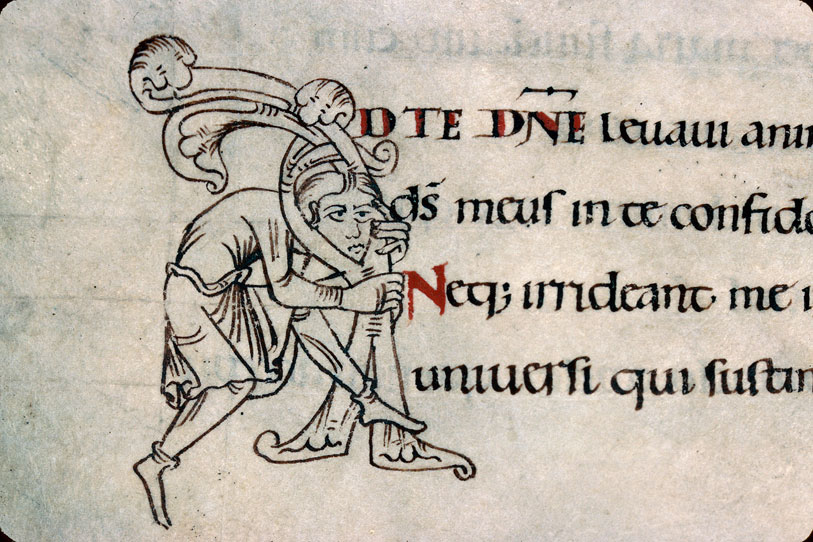 AD TE DN̄E levavi anim
ds̄ meus in te confido
Neq; irrideant me i
universi qui sustin